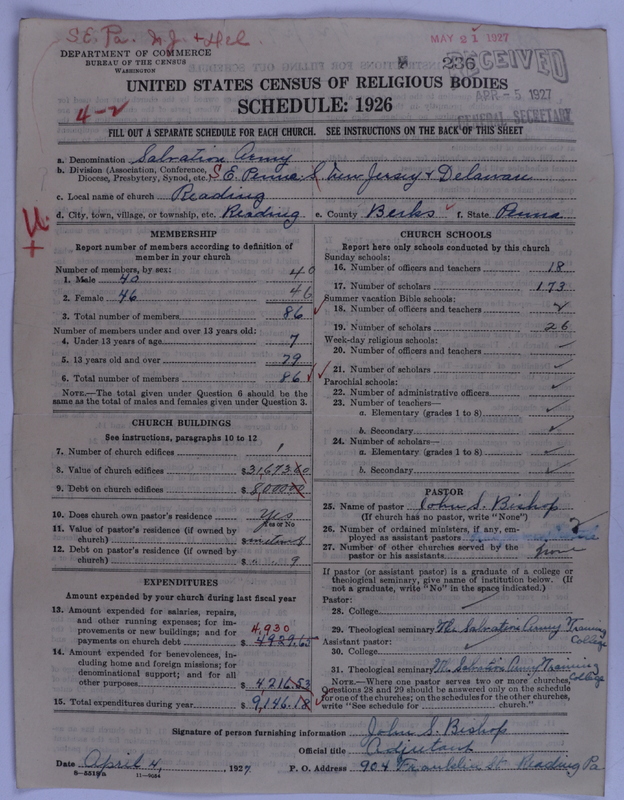 S.E. Pa. N.J. + Del.
MAY 21 1927
DEPARTMENT OF COMMERCE
BUREAU OF THE CENSUS
WASHINGTON
236
RECEIVED
APR - 5 1927
GENERAL SECRETARY
UNITED STATES CENSUS OF RELIGIOUS BODIES
SCHEDULE: 1926
4-2
FILL OUT A SEPARATE SCHEDULE FOR EACH CHURCH. SEE INSTRUCTIONS ON THE BACK OF THIS SHEET
a. Denomination Salvation Army
b. Division (Association, Conference, Diocese, Presbytery, Synod, etc.) S.E. Penna. New Jersey & Delaware
c. Local name of church Reading
d. City, town, village, or township, etc. Reading e. County Berks f. State Penna
MEMBERSHIP
Report number of members according to definition of
member in your church
Number of members, by sex:
1. Male 40 40
2. Female 46 46
3. Total number of members 86
Number of members under and over 13 years old:
4. Under 13 years of age 7
5. 13 years old and over 79
6. Total number of members 86
NOTE.—The total given under Question 6 should be the
same as the total of males and females given under Question 3.
CHURCH BUILDINGS
See instructions, paragraphs 10 to 12
7. Number of church edifices 1
8. Value of church edifices $31,673.60
9. Debt on church edifices $8,000.00
10. Does church own pastor's residence Yes
Yes or No
11. Value of pastor's residence (if owned by
church) $
12. Debt on pastor's residence (if owned by
church) $
EXPENDITURES
Amount expended by your church during last fiscal year
13. Amount expended for salaries, repairs,
and other running expenses; for im-
provements or new buildings; and for
payments on church debt $ 4,930 4929.65
14. Amount expended for benevolences, in-
cluding home and foreign missions; for
denominational support; and for all
other purposes $ 4216.53
15. Total expenditures during year $9,146.18
CHURCH SCHOOLS
Report here only schools conducted by this church
Sunday schools:
16. Number of officers and teachers 18
17. Number of scholars 173
Summer vacation Bible schools:
18. Number of officers and teachers 2
19. Number of scholars 26
Week-day religious schools:
20. Number of officers and teachers
21. Number of scholars
Parochial schools:
22. Number of administrative officers
23. Number of teachers—
a. Elementary (grades 1 to 8)
b. Secondary
24. Number of scholars—
a. Elementary (grades 1 to 8)
b. Secondary
PASTOR
25. Name of pastor John S. Bishop
(If church has no pastor, write "None")
26. Number of ordained ministers, if any, em-
ployed as assistant pastors 2
27. Number of other churches served by the
pastor and his assistants none
If pastor (or assistant pastor) is a graduate of a college or
theological seminary, give name of institution below. (If
not a graduate, write "No" in the space indicated.)
Pastor:
28. College
29. Theological seminary The Salvation Army Training College
Assistant pastor:
30. College
31. Theological seminary The Salvation Army Training College
NOTE.—Where one pastor serves two or more churches,
Questions 28 and 29 should be answered only on the schedule
for one of the churches; on the schedules for the other churches,
write "See schedule for church."
Signature of person furnishing information John S. Bishop
Official title Adjutant
Date April 4, 1927 P. O. Address 904 Franklin St Reading Pa
8-5518a 11-9084